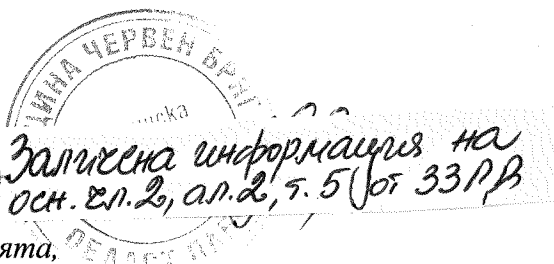 ЩИНА ЧЕРВЕН БРЯГ
Заличена информация на
осн. чл.2, ал.2, т. 5 от ЗЗЛД
ОБЛАСТ
ята,